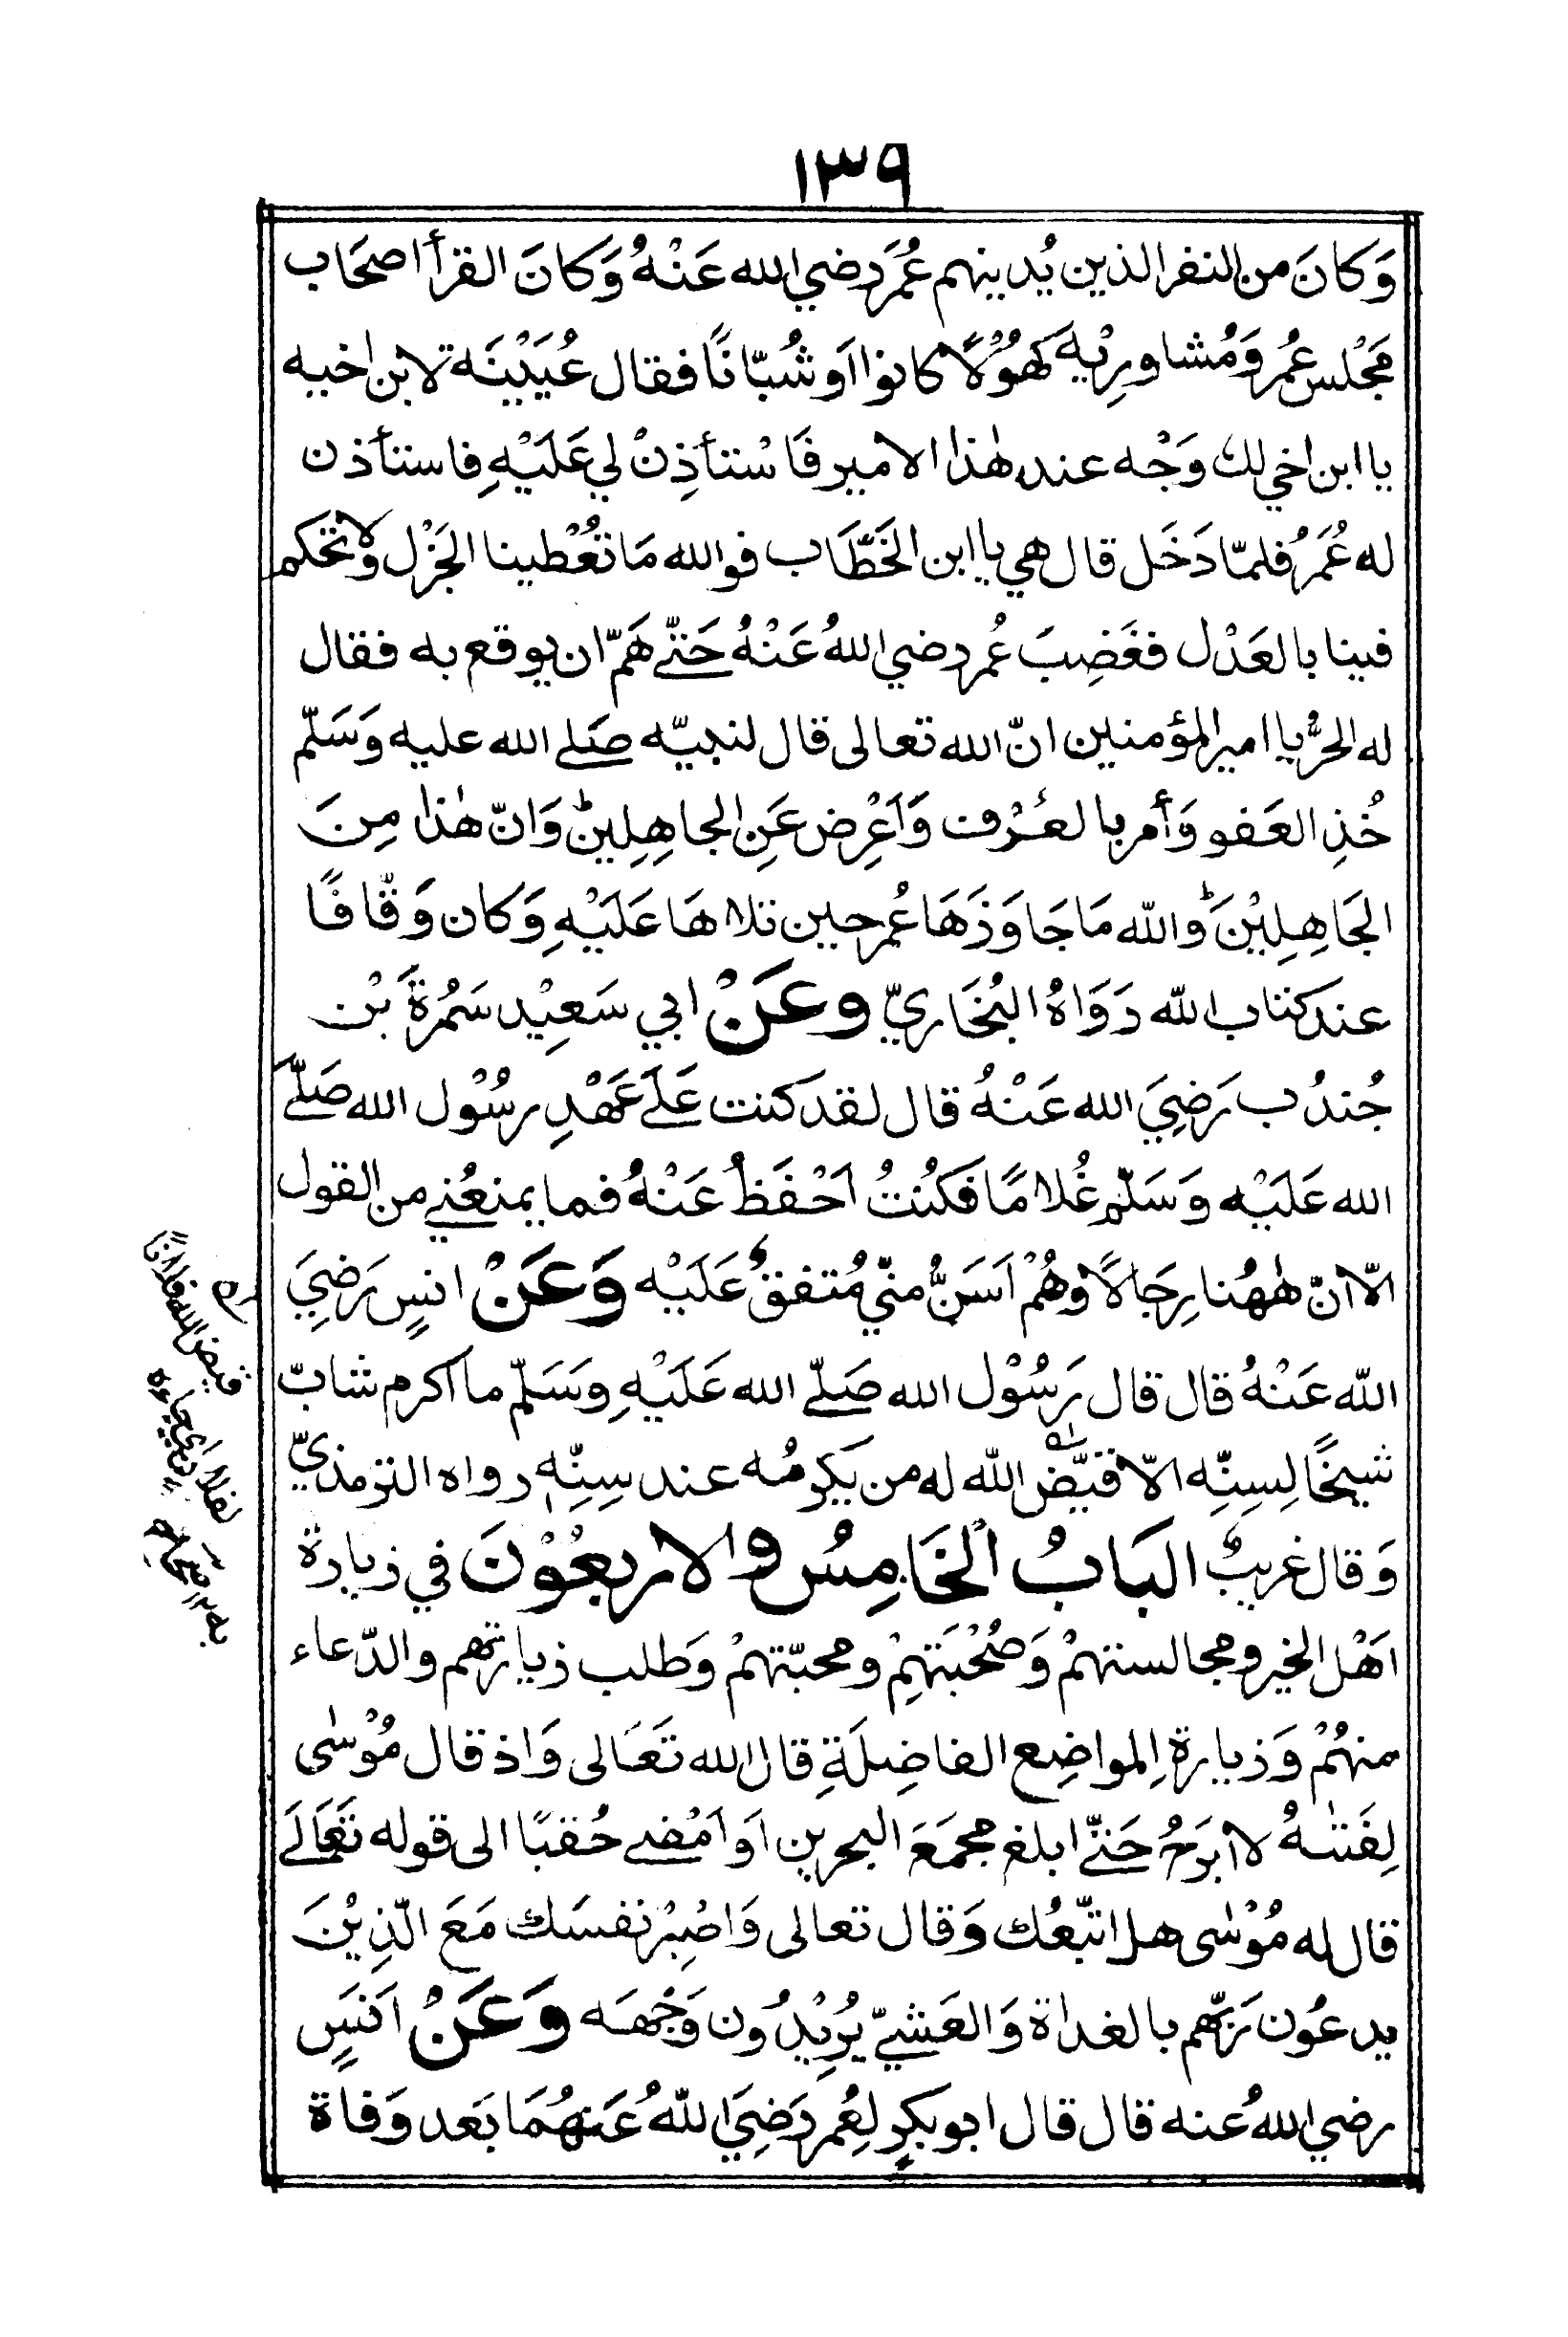 ١٣٩
وَكانَ من النفر الذين يُدينهم عُمَر رضي الله عَنْهُ وَكانَ القرأ اصحَاب
مَجْلس عُمر وَمُشاورِيْه كَهُوْلًا كانوا اَو شُبّانًا فقال عُيَيْنَة لابن اخيه
يا ابن اخي لك وَجْه عند هٰذا الامير فَاسْتأذِنْ لي عَلَيْهِ فاستأذن
له عُمَرُ فلمّا دَخَل قال هي يا ابن الخَطَّاب فوالله مَا تُعْطينا الجَزْل ولا تحكم
فينا بالعَدْل فغَضِبَ عُمر رضي اللهُ عَنْهُ حَتّٰے هَمّ ان يوقع به فقال
له الحرُّ يا امير المؤمنين انّ الله تعالى قال لنبيّه صَلے الله عليه وَسَلّم
خُذِ العَفو وَأمر بالعُرْف وَاَعْرِض عَنِ الجاهِلِينَ وَانّ هٰذا مِنَ
الجَاهِلِيْنَ والله مَا جَاوَزَهَا عُمر حين تلاهَا عَلَيْهِ وَكان وَقّافًا
عند كتاب الله رَوَاهُ البُخَاريّ وعَنْ ابي سَعِيْد سَمُرةَ بْن
جُندُب رَضِيَ الله عَنْهُ قال لقد كنت عَلَے عَهْدِ رسُوْل الله صَلّے
الله عَلَيْه وَسَلّم غُلامًا فَكُنْتُ اَحْفَظُ عَنْهُ فما يمنعُنے من القول
الّا انّ هٰهُنا رِجَالًا وهُمْ اَسَنُّ منّي مُتفقٌ عَلَيْه وَعَنْ انسٍ رَضِيَ
الله عَنْهُ قال قال رَسُوْل الله صَلّے الله عَلَيْهِ وسَلّم ما اكرم شابّ
شيخًا لِسِنِّه الّا قيَّض الله له من يَكرمُه عند سِنِّه رواه الترمذيّ
وَقال غريبٌ البَابُ الخَامِسُ والاربعُوْنَ في زيارة
اَهْل الخير ومجالستهمْ وَصُحْبَتهِمْ ومحبّتهمْ وَطلب زيارتهم والدّعاء
منهُمْ وَزيارة المواضِع الفاضِلَةِ قال الله تَعَالى وَاذ قال مُوْسٰى
لِفَتٰهُ لا ابرَحُ حَتّٰے ابلغ مجمَعَ البحرين اَو اَمْضے حُقبًا الى قوله تَعَالَے
قال له مُوْسٰى هل اتّبعُك وَقال تعالى وَاصْبِرْ نفسَك مَعَ الّذِيْنَ
يدعُون رَبّهم بالغداة وَالعَشيّ يُرِيْدُون وَجْهَه وَعَنْ اَنَسٍ
رضي اللهُ عنه قال قال ابو بكرٍ لعُمر رَضِيَ اللهُ عَنهُمَا بَعد وَفاة